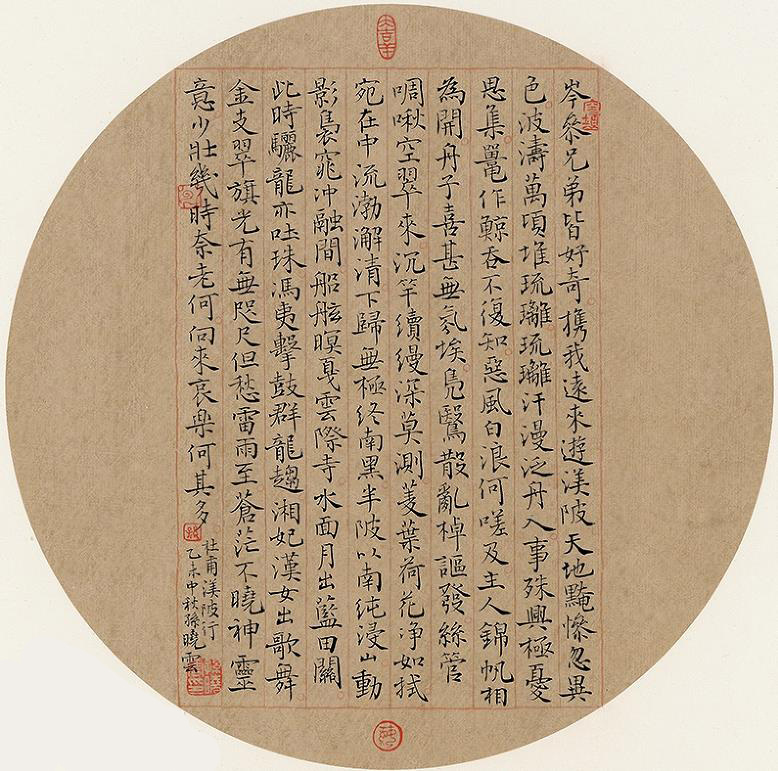 岑參兄弟皆好奇携我遠來遊渼陂天地黤慘忽異
色波濤萬頃堆琉璃琉璃汗漫泛舟入事殊興極憂
思集鼉作鯨吞不復知惡風白浪何嗟及主人錦帆相
為開舟子喜甚無氛埃鳧鷖散亂棹謳發絲管
啁啾空翠來沉竿續縵深莫測菱葉荷花浄如拭
宛在中流渤澥清下歸無極終南黑半陂以南純浸山動
影裊窕沖融間船舷暝戛雲際寺水面月出藍田關
此時驪龍亦吐珠馮夷擊鼓群龍趨湘妃漢女出歌舞
金支翠旗光有無咫尺但愁雷雨至蒼茫不曉神靈
意少壯幾時奈老何向來哀樂何其多
杜甫渼陂行
乙未中秋孫曉雲
大吉羊